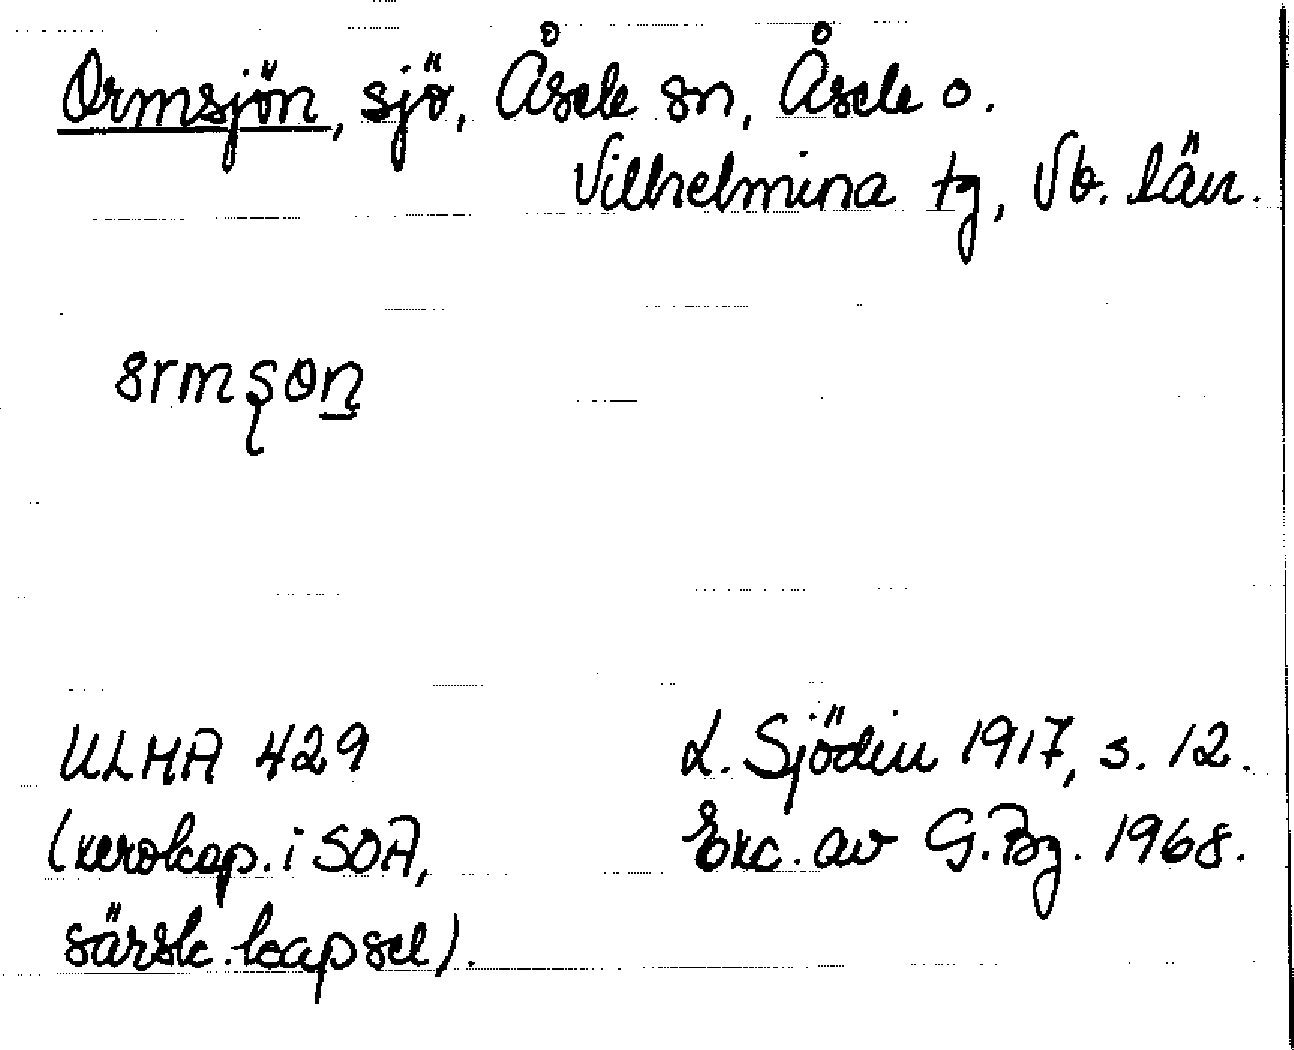 Ormsjön, sjö, Åsele sn, Åsele o.
Vilhelmina tg, Vb. län.
ULMA 429
L. Sjödin 1917, s. 12.
(xerokop. i SOA,
Exc. av G. Bg. 1968.
särsk. kapsel).